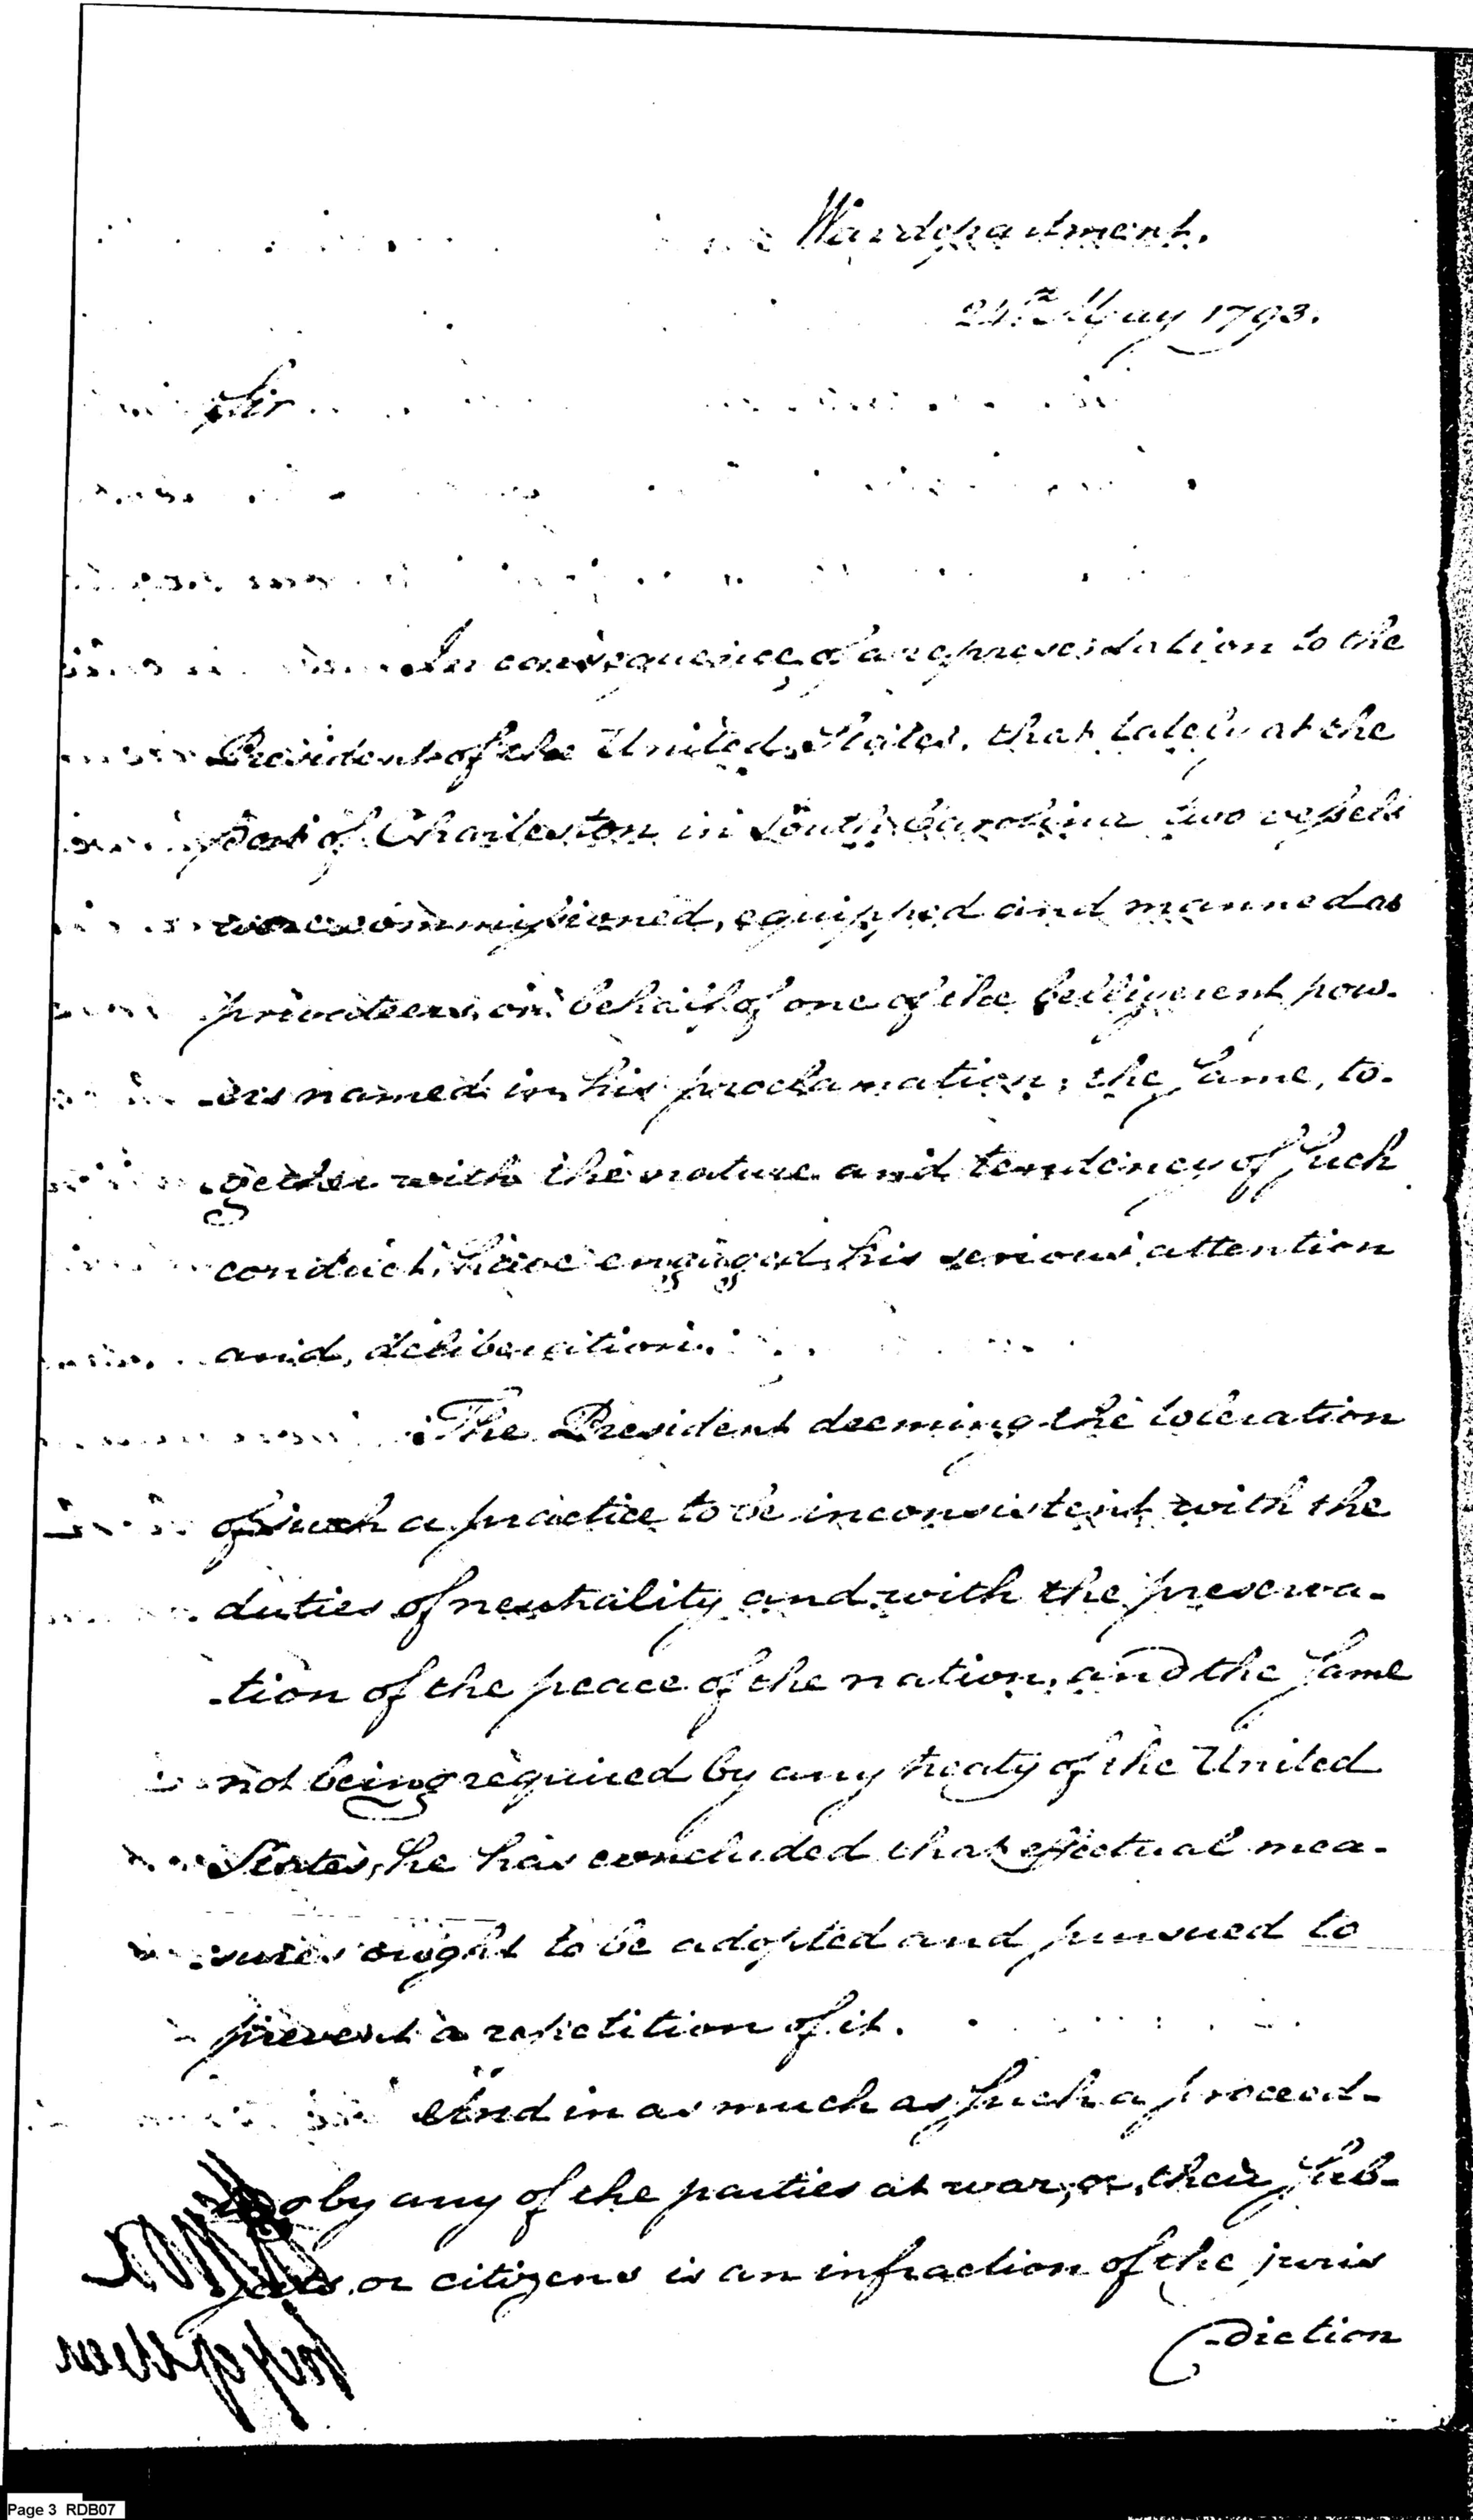 War department.
May 1793.
Sir
In consequence of a representation to the
President of the United States, that lately at the
Port of Charleston in South Carolina two vessels
were commissioned, equipped and manned as
privateers on behalf of one of the belligerent pow-
-ers named in his proclamation; the same, to-
-gether with the nature and tendency of such
conduct, have engaged his serious attention
and deliberation.
The President deeming the toleration
of such a practice to be inconsistent with the
duties of neutrality and with the preserva-
-tion of the peace of the nation, and the same
not being required by any treaty of the United
States, he has concluded that effectual mea-
-sures ought to be adopted and pursued to
prevent a repetition of it.
And in as much as such a proceed-
by any of the parties at war, or their sub-
-jects or citizens is an infraction of the juris
-diction
Page 3 RDB07